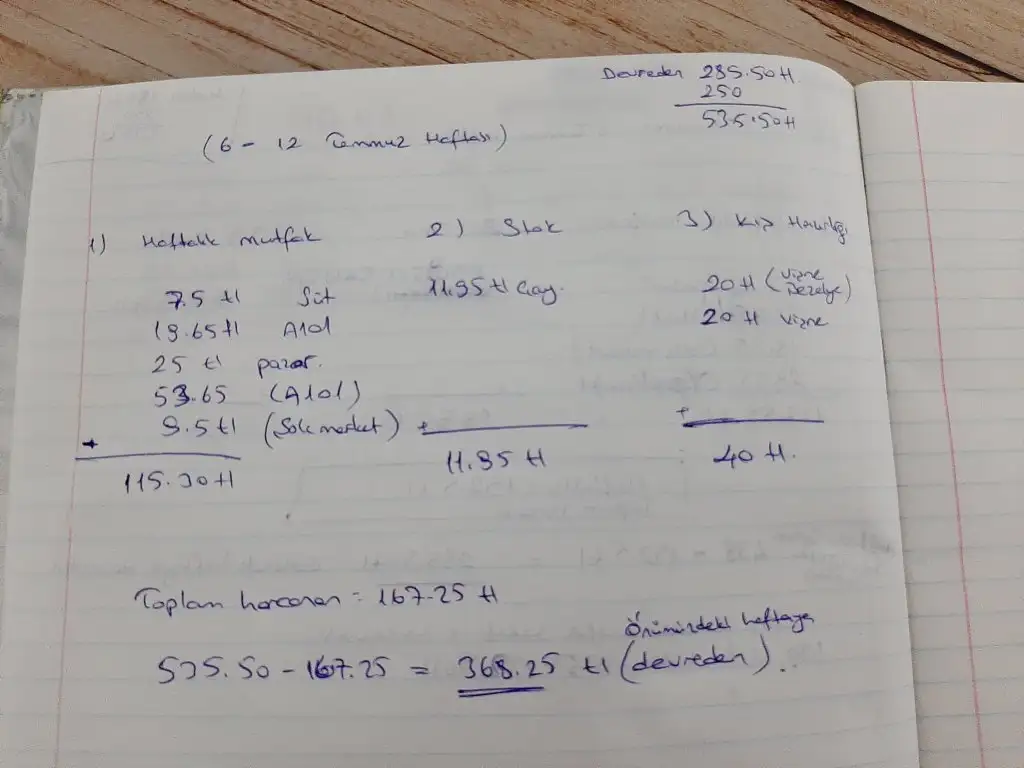 Devreden 285.50 tl
250
535.50 tl
(6 - 12 Temmuz Haftası)
1) Haftalık mutfak
7.5 tl Süt
19.65 tl A101
25 tl pazar.
53.65 (A101)
9.5 tl (Şok market)
+
115.30 tl
2) Stok
11.95 tl Çay.
+
11.95 tl
3) Kış Hazırlığı
20 tl (Vişne Bezelye)
20 tl Vişne
+
40 tl.
Toplam harcanan = 167.25 tl
535.50 - 167.25 = 368.25 tl (devreden)
Önümüzdeki haftaya